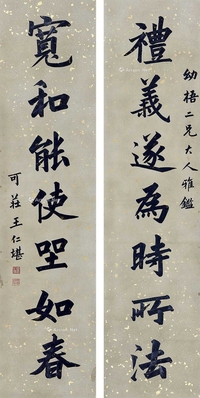 幼梧二兄大人雅鑑
禮義遂為時所法
寬和能使坐如春
可莊王仁堪